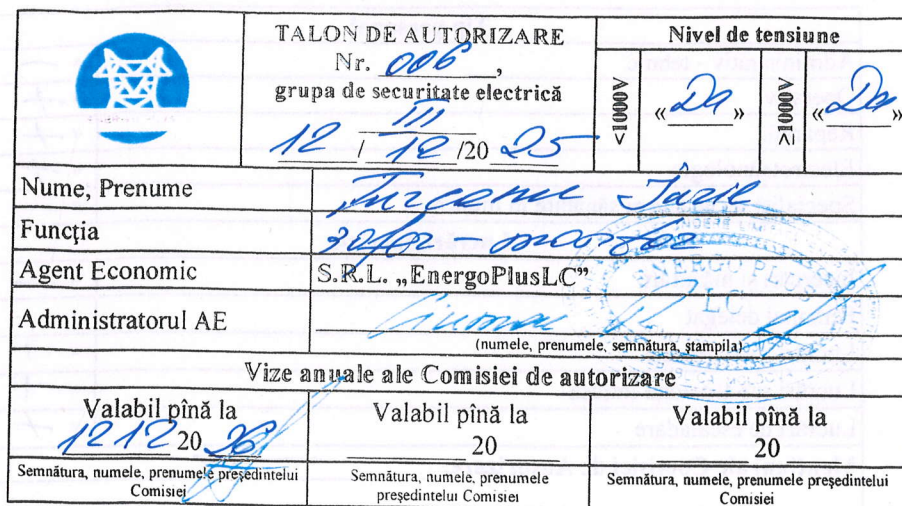 TALON DE AUTORIZARE
Nr. 006,
grupa de securitate electrică
III
12 / 12 /20 25
Nivel de tensiune
<1000V «Da» ≥1000V «Da»
Nume, Prenume
Funcţia
Agent Economic S.R.L. „EnergoPlusLC”
ENERGO PLUS
LC
Administratorul AE
(numele, prenumele, semnătura, ştampila)
Vize anuale ale Comisiei de autorizare
Valabil pînă la
12 12 20 26
Semnătura, numele, prenumele preşedintelui
Comisiei
Valabil pînă la
20
Semnătura, numele, prenumele
preşedintelui Comisiei
Valabil pînă la
20
Semnătura, numele, prenumele preşedintelui
Comisiei